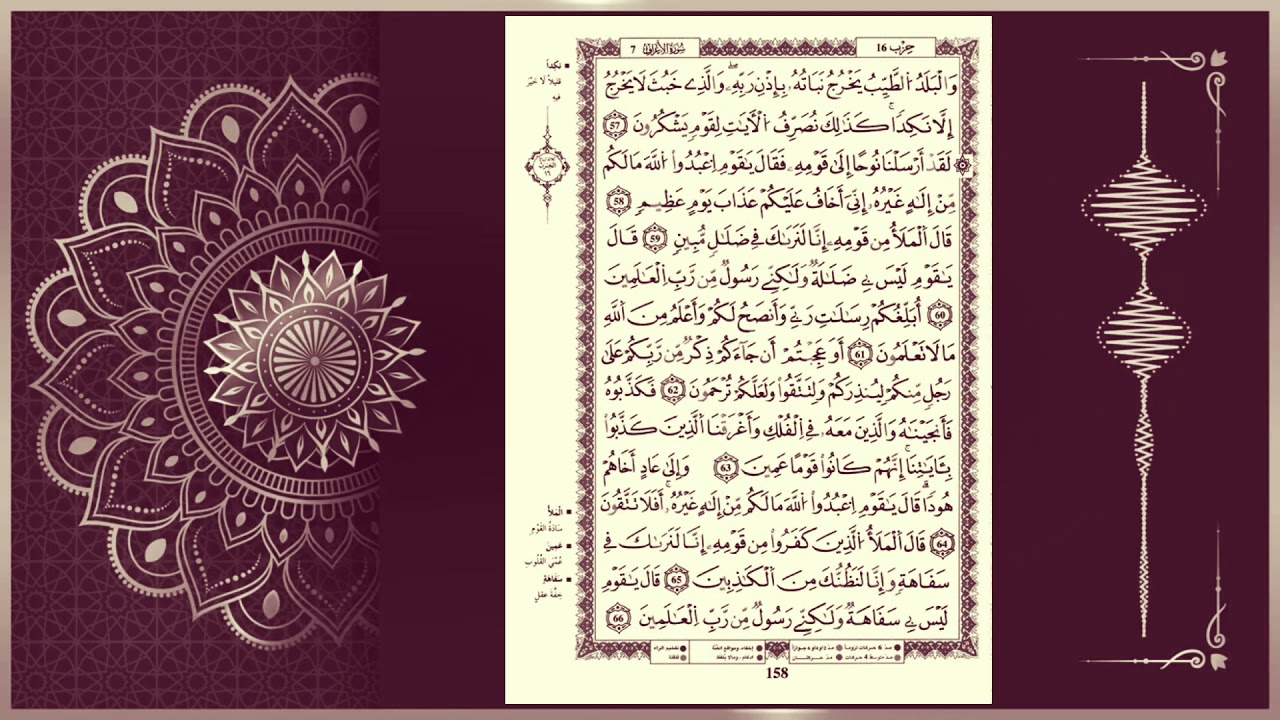 حِزْب 16
سُورَةُ الأَعْرَافِ 7
وَالْبَلَدُ الطَّيِّبُ يَخْرُجُ نَبَاتُهُ بِإِذْنِ رَبِّهِۦ وَالَّذِے خَبُثَ لَا يَخْرُجُ
إِلَّا نَكِدًا كَذَٰلِكَ نُصَرِّفُ الْأَيَٰتِ لِقَوْمٍ يَشْكُرُونَ 57
لَقَدْ أَرْسَلْنَا نُوحًا إِلَىٰ قَوْمِهِۦ فَقَالَ يَٰقَوْمِ اِعْبُدُوا اللَّهَ مَا لَكُم
مِّنْ إِلَٰهٍ غَيْرُهُۥ إِنِّيَ أَخَافُ عَلَيْكُمْ عَذَابَ يَوْمٍ عَظِيمٍ 58
قَالَ الْمَلَأُ مِن قَوْمِهِۦ إِنَّا لَنَرَىٰكَ فِے ضَلَٰلٍ مُّبِينٍ 59 قَالَ
يَٰقَوْمِ لَيْسَ بِے ضَلَٰلَةٌ وَلَٰكِنِّے رَسُولٌ مِّن رَّبِّ اِلْعَٰلَمِينَ
60 أُبَلِّغُكُمْ رِسَٰلَٰتِ رَبِّے وَأَنصَحُ لَكُمْ وَأَعْلَمُ مِنَ اَللَّهِ
مَا لَا تَعْلَمُونَ 61 أَوَعَجِبْتُمْ أَن جَآءَكُمْ ذِكْرٌ مِّن رَّبِّكُمْ عَلَىٰ
رَجُلٍ مِّنكُمْ لِيُنذِرَكُمْ وَلِتَتَّقُوا وَلَعَلَّكُمْ تُرْحَمُونَ 62 فَكَذَّبُوهُ
فَأَنجَيْنَٰهُ وَالَّذِينَ مَعَهُۥ فِے اِلْفُلْكِ وَأَغْرَقْنَا اَلَّذِينَ كَذَّبُوا
بِـَٔايَٰتِنَا إِنَّهُمْ كَانُوا قَوْمًا عَمِينَ 63 وَإِلَىٰ عَادٍ أَخَاهُمْ
هُودًا قَالَ يَٰقَوْمِ اِعْبُدُوا اللَّهَ مَا لَكُم مِّنْ إِلَٰهٍ غَيْرُهُۥ أَفَلَا تَتَّقُونَ
64 قَالَ الْمَلَأُ الَّذِينَ كَفَرُوا مِن قَوْمِهِۦ إِنَّا لَنَرَىٰكَ فِے
سَفَاهَةٍ وَإِنَّا لَنَظُنُّكَ مِنَ اَلْكَٰذِبِينَ 65 قَالَ يَٰقَوْمِ
لَيْسَ بِے سَفَاهَةٌ وَلَٰكِنِّے رَسُولٌ مِّن رَّبِّ اِلْعَٰلَمِينَ 66
نَكِداً
قَلِيلاً لَا خَيْرَ
فِيهِ
الْمَلَأُ
سَادَةُ القَوْمِ
عَمِينَ
عُمْيَ القُلُوبِ
سَفَاهَةٍ
خِفَّةُ عَقْلٍ
158